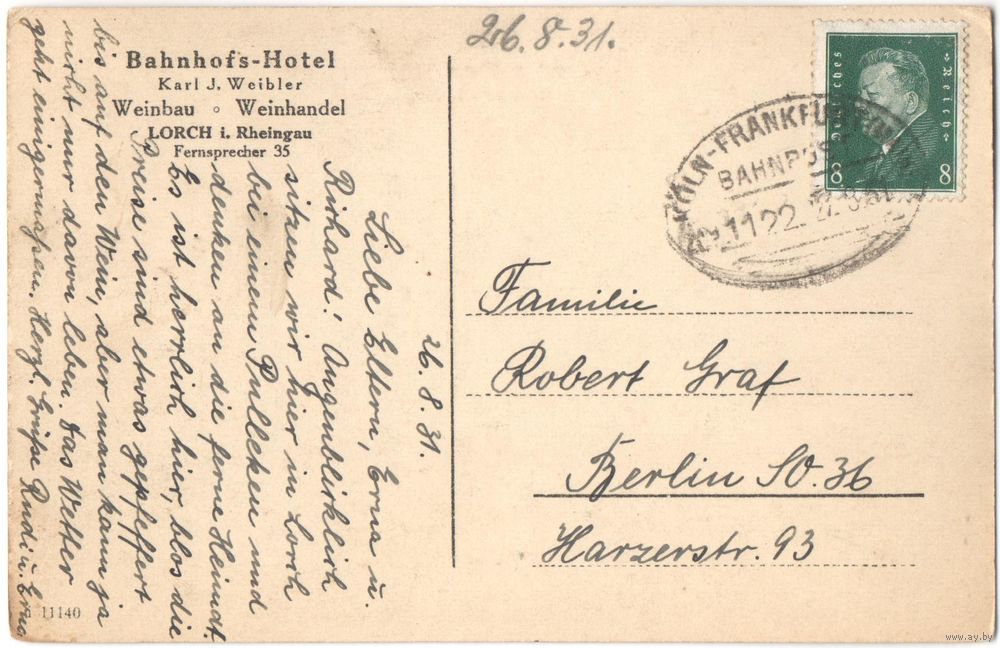 26.8.31.
Bahnhofs-Hotel
Karl J. Weibler
Weinbau ◦ Weinhandel
LORCH i. Rheingau
Fernsprecher 35
26. 8. 31.
Liebe Eltern, Erna u.
Richard! Augenblicklich
sitzen wir hier in Lorch
bei einem Pulleken und
denken an die ferne Heimat.
Es ist herrlich hier, blos die
Preise sind etwas gepfeffert
bis auf den Wein, aber man kann ja
nicht nur davon leben. Das Wetter
geht einigermaßen. Herzl. Grüße Rudi u. Erna
11140
Deutsches Reich
8 8
KÖLN-FRANKFURT
BAHNPOST
Zug 1122 27.8.31
Familie
Robert Graf
Berlin SO. 36
Harzerstr. 93
www.ay.by